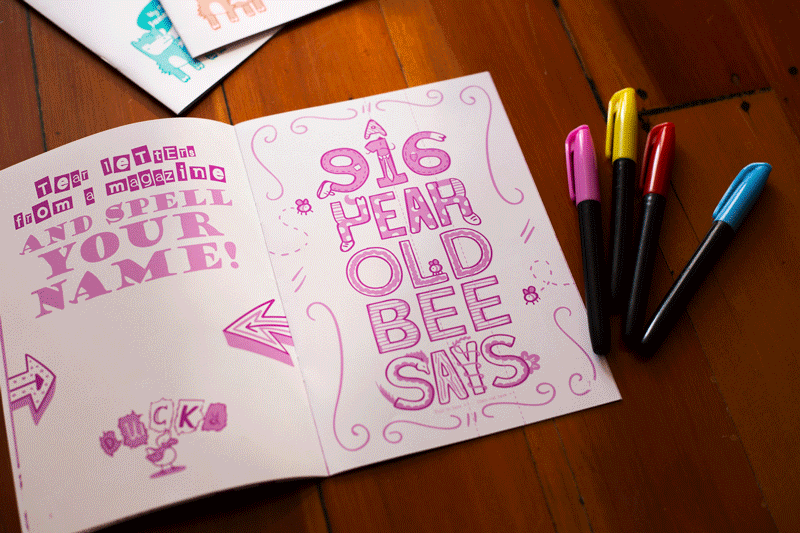 Tear letters
from a magazine
AND SPELL
YOUR
NAME!
916
YEAR
OLD
BEE
SAYS